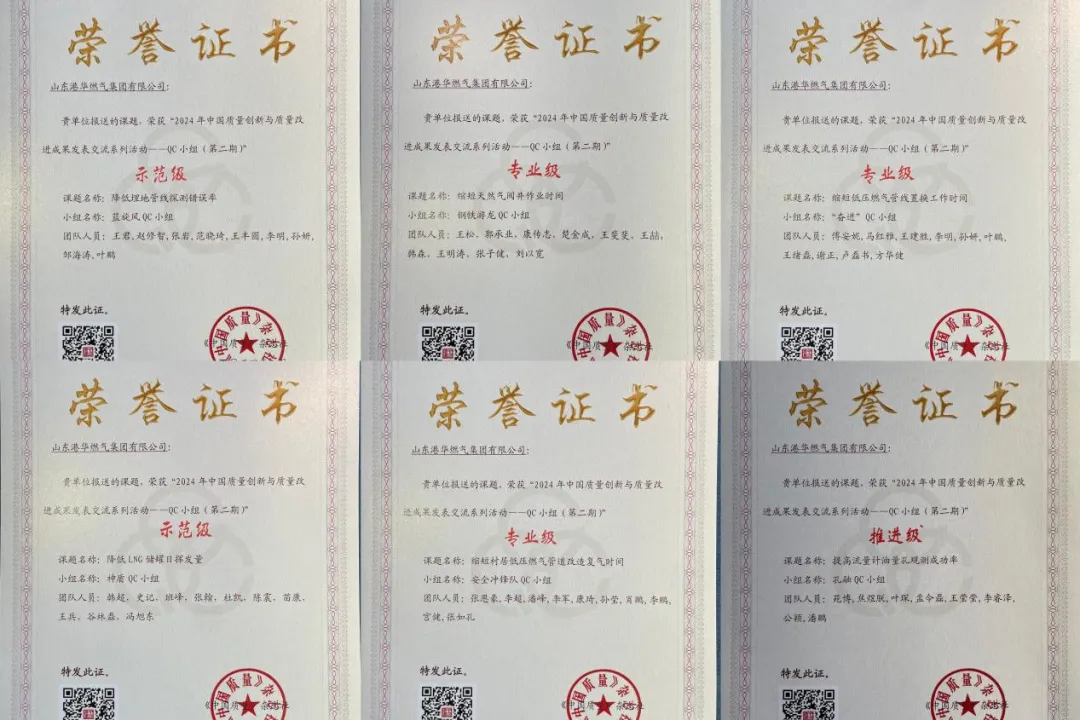 荣誉证书
山东港华燃气集团有限公司:
贵单位报送的课题，荣获“2024年中国质量创新与质量改
进成果发表交流系列活动——QC小组（第二期）”
示范级
课题名称：降低埋地管线探测错误率
小组名称：蓝旋风QC小组
团队人员：王君,赵修智,张岩,范晓琦,王丰圆,李明,孙妍,
邹海涛,叶鹏
特发此证。
《中国质量》杂志社
荣誉证书
山东港华燃气集团有限公司:
贵单位报送的课题，荣获“2024年中国质量创新与质量改
进成果发表交流系列活动——QC小组（第二期）”
专业级
课题名称：缩短天然气阀井作业时间
小组名称：钢铁游龙QC小组
团队人员：王松、郭承业、康传志、楚金成、王斐斐、王喆、
韩森、王明涛、张子健、刘以宽
特发此证。
《中国质量》杂志社
荣誉证书
山东港华燃气集团有限公司:
贵单位报送的课题，荣获“2024年中国质量创新与质量改
进成果发表交流系列活动——QC小组（第二期）”
专业级
课题名称：缩短低压燃气管线置换工作时间
小组名称：“奋进”QC小组
团队人员：傅安妮,马红雅,王建胜,李明,孙妍,叶鹏,
王绪磊,谢正,卢磊书,方华健
特发此证。
《中国质量》杂志社
荣誉证书
山东港华燃气集团有限公司:
贵单位报送的课题，荣获“2024年中国质量创新与质量改
进成果发表交流系列活动——QC小组（第二期）”
示范级
课题名称：降低LNG储罐日挥发量
小组名称：神质QC小组
团队人员：韩超、史记、班峰、张翰、杜凯、陈震、苗康、
王兵、谷林磊、冯旭东
特发此证。
《中国质量》杂志社
荣誉证书
山东港华燃气集团有限公司:
贵单位报送的课题，荣获“2024年中国质量创新与质量改
进成果发表交流系列活动——QC小组（第二期）”
专业级
课题名称：缩短村居低压燃气管道改造复气时间
小组名称：安全冲锋队QC小组
团队人员：张恩豪,李超,潘峰,李军,康琦,孙莹,肖鹏,李鹏,
宫健,张如孔
特发此证。
《中国质量》杂志社
荣誉证书
山东港华燃气集团有限公司:
贵单位报送的课题，荣获“2024年中国质量创新与质量改
进成果发表交流系列活动——QC小组（第二期）”
推进级
课题名称：提高流量计油量孔观测成功率
小组名称：孔融QC小组
团队人员：苑博,焦煜朕,叶琛,孟令磊,王莹莹,李睿泽,
公颖,潘鹏
特发此证。
《中国质量》杂志社